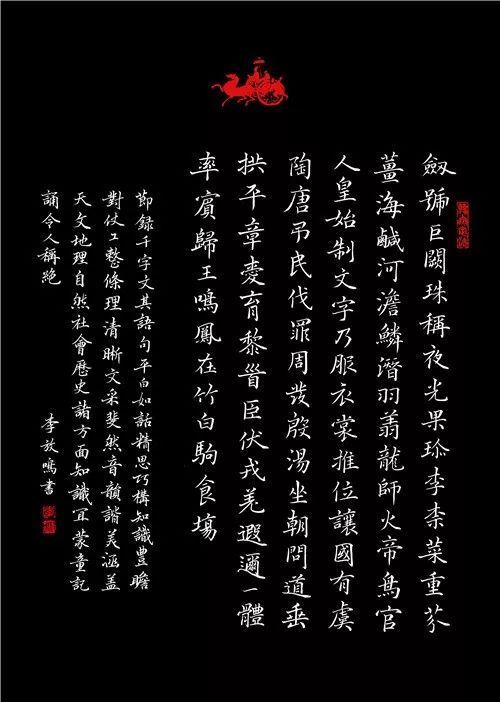 劔號巨闕珠稱夜光果珍李柰菜重芥
薑海鹹河澹鱗潛羽翔龍師火帝鳥官
人皇始制文字乃服衣裳推位讓國有虞
陶唐弔民伐罪周發殷湯坐朝問道垂
拱平章愛育黎首臣伏戎羌遐邇一體
率賓歸王鳴鳳在竹白駒食場
節録千字文其語句平白如話精思巧構知識豊贍
對仗工整條理清晰文采斐然音韻諧美涵蓋
天文地理自然社會歷史諸方面知識宜蒙童記
誦令人稱絶
李放鳴書